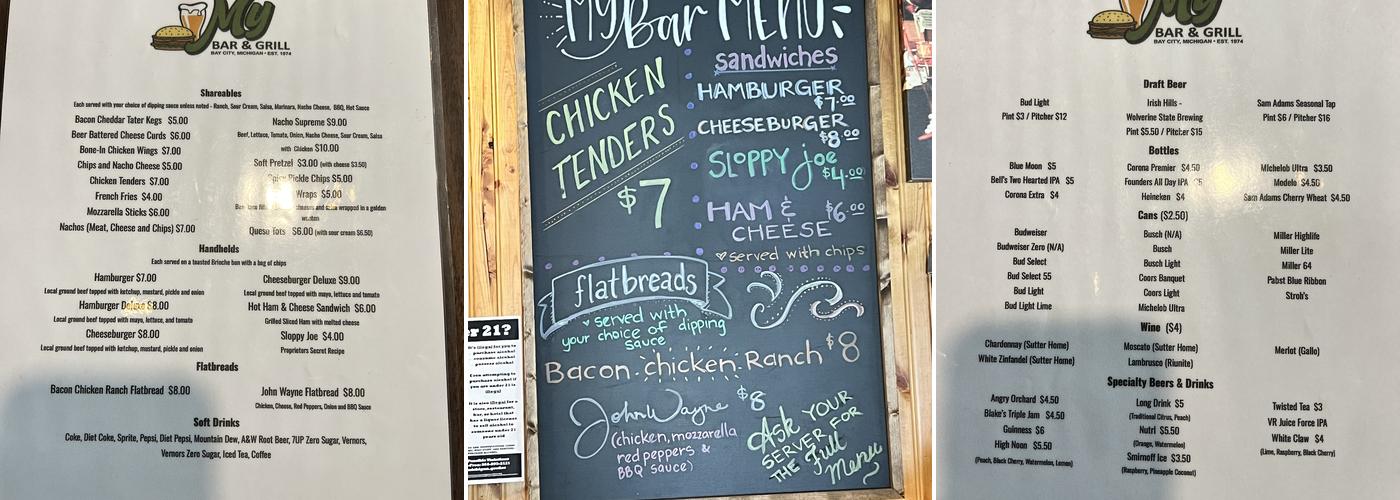 My
BAR & GRILL
BAY CITY, MICHIGAN • EST. 1974
Shareables
Each served with your choice of dipping sauce unless noted - Ranch, Sour Cream, Salsa, Marinara, Nacho Cheese, BBQ, Hot Sauce
Bacon Cheddar Tater Kegs $5.00
Beer Battered Cheese Curds $6.00
Bone-In Chicken Wings $7.00
Chips and Nacho Cheese $5.00
Chicken Tenders $7.00
French Fries $4.00
Mozzarella Sticks $6.00
Nachos (Meat, Cheese and Chips) $7.00
Nacho Supreme $9.00
Beef, Lettuce, Tomato, Onion, Nacho Cheese, Sour Cream, Salsa
with Chicken $10.00
Soft Pretzel $3.00 (with cheese $3.50)
Pickle Chips $5.00
Wraps $5.00
wrapped in a golden
wonton
Queso Tots $6.00 (with sour cream $6.50)
Handhelds
Each served on a toasted Brioche bun with a bag of chips
Hamburger $7.00
Local ground beef topped with ketchup, mustard, pickle and onion
Hamburger Deluxe $8.00
Local ground beef topped with mayo, lettuce, and tomato
Cheeseburger $8.00
Local ground beef topped with ketchup, mustard, pickle and onion
Cheeseburger Deluxe $9.00
Local ground beef topped with mayo, lettuce and tomato
Hot Ham & Cheese Sandwich $6.00
Grilled Sliced Ham with melted cheese
Sloppy Joe $4.00
Proprietors Secret Recipe
Flatbreads
Bacon Chicken Ranch Flatbread $8.00
John Wayne Flatbread $8.00
Chicken, Cheese, Red Peppers, Onion and BBQ Sauce
Soft Drinks
Coke, Diet Coke, Sprite, Pepsi, Diet Pepsi, Mountain Dew, A&W Root Beer, 7UP Zero Sugar, Vernors,
Vernors Zero Sugar, Iced Tea, Coffee
My Bar MENU
CHICKEN
TENDERS
$7
sandwiches
HAMBURGER
$7.00
CHEESEBURGER
$8.00
SLOPPY joe
$4.00
HAM &
CHEESE
$6.00
served with chips
flatbreads
served with
your choice of dipping
sauce
Bacon chicken Ranch $8
John Wayne $8
(chicken, mozzarella
red peppers &
BBQ sauce)
Ask YOUR
SERVER FOR
THE Full
Menu
er 21?
My
BAR & GRILL
BAY CITY, MICHIGAN • EST. 1974
Draft Beer
Bud Light
Pint $3 / Pitcher $12
Irish Hills -
Wolverine State Brewing
Pint $5.50 / Pitcher $15
Sam Adams Seasonal Tap
Pint $6 / Pitcher $16
Bottles
Blue Moon $5
Bell's Two Hearted IPA $5
Corona Extra $4
Corona Premier $4.50
Founders All Day IPA
Heineken $4
Michelob Ultra $3.50
Modelo $4.50
Sam Adams Cherry Wheat $4.50
Cans ($2.50)
Budweiser
Budweiser Zero (N/A)
Bud Select
Bud Select 55
Bud Light
Bud Light Lime
Busch (N/A)
Busch
Busch Light
Coors Banquet
Coors Light
Michelob Ultra
Miller Highlife
Miller Lite
Miller 64
Pabst Blue Ribbon
Stroh's
Wine ($4)
Chardonnay (Sutter Home)
White Zinfandel (Sutter Home)
Moscato (Sutter Home)
Lambrusco (Riunite)
Merlot (Gallo)
Specialty Beers & Drinks
Angry Orchard $4.50
Blake's Triple Jam $4.50
Guinness $6
High Noon $5.50
(Peach, Black Cherry, Watermelon, Lemon)
Long Drink $5
(Traditional Citrus, Peach)
Nutrl $5.50
(Orange, Watermelon)
Smirnoff Ice $3.50
(Raspberry, Pineapple Coconut)
Twisted Tea $3
VR Juice Force IPA
White Claw $4
(Lime, Raspberry, Black Cherry)